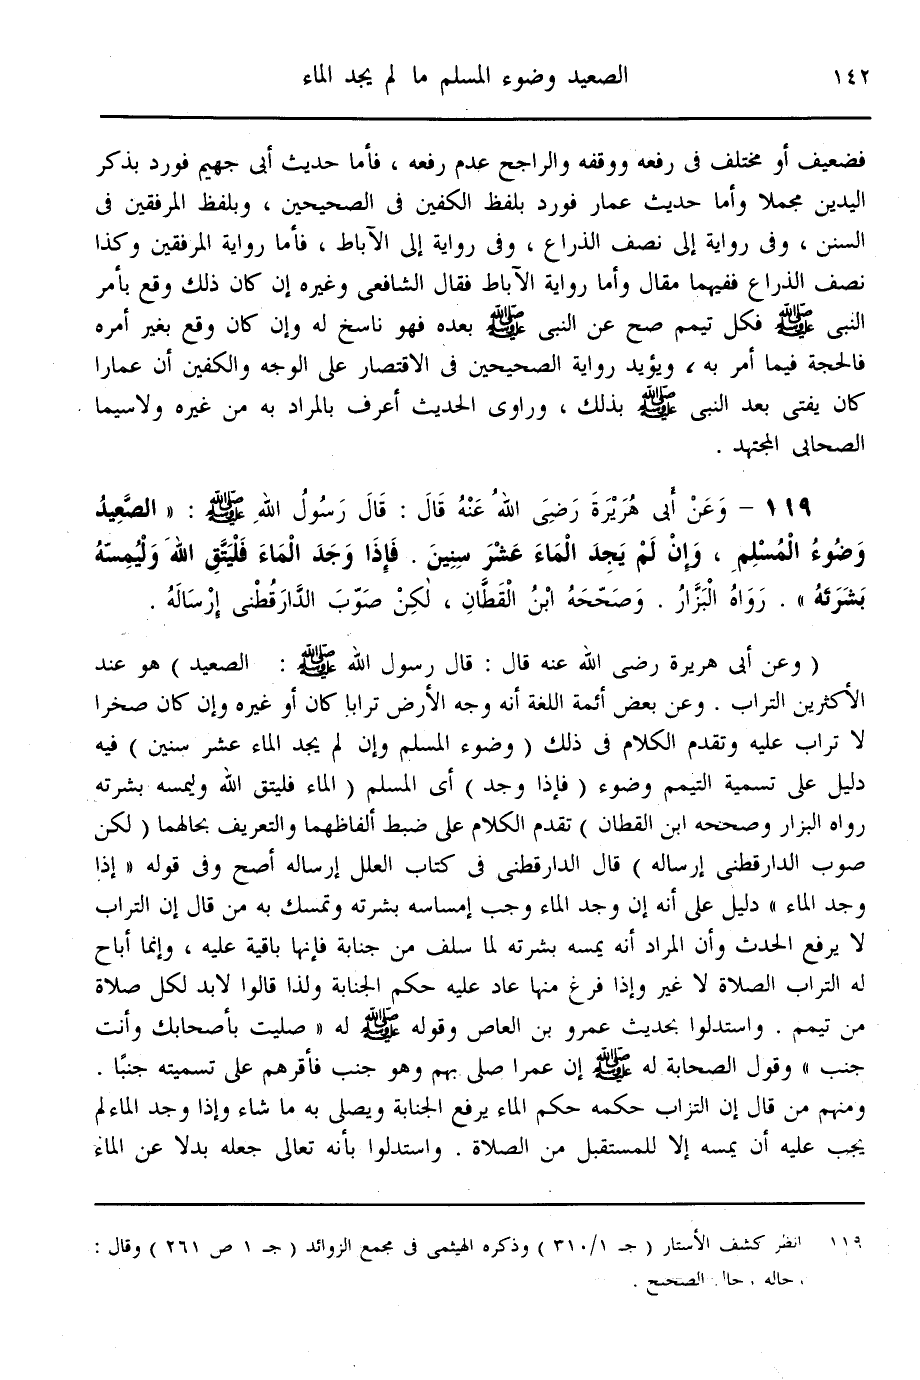 ١٤٢ الصعيد وضوء المسلم ما لم يجد الماء
فضعيف أو مختلف فى رفعه ووقفه والراجح عدم رفعه ، فأما حديث أبى جهيم فورد بذكر
اليدين مجملا وأما حديث عمار فورد بلفظ الكفين فى الصحيحين ، وبلفظ المرفقين فى
السنن ، وفى رواية إلى نصف الذراع ، وفى رواية إلى الآباط ، فأما رواية المرفقين وكذا
نصف الذراع ففيهما مقال وأما رواية الآباط فقال الشافعى وغيره إن كان ذلك وقع بأمر
النبى ﷺ فكل تيمم صح عن النبى ﷺ بعده فهو ناسخ له وإن كان وقع بغير أمره
فالحجة فيما أمر به ، ويؤيد رواية الصحيحين فى الاقتصار على الوجه والكفين أن عمارا
كان يفتى بعد النبى ﷺ بذلك ، وراوى الحديث أعرف بالمراد به من غيره ولاسيما
الصحابى المجتهد .
١١٩ – وَعَنْ أَبى هُرَيْرَةَ رَضِىَ اللهُ عَنْهُ قَالَ : قَالَ رَسُولُ اللهِ ﷺ : « الصَّعِيدُ
وَضُوءُ الْمُسْلِمِ ، وَإِنْ لَمْ يَجِدَ الْمَاءَ عَشْرَ سِنِينَ . فَإِذَا وَجَدَ الْمَاءَ فَلْيَتَّقِ اللهَ وَلْيُمِسَّهُ
بَشَرَتَهُ » . رَوَاهُ الْبَزَّارُ . وَصَحَّحَهُ ابْنُ الْقَطَّانِ ، لَكِنْ صَوَّبَ الدَّارَقُطْنى إِرْسَالَهُ .
( وعن أبى هريرة رضى الله عنه قال : قال رسول الله ﷺ : الصعيد ) هو عند
الأكثرين التراب . وعن بعض أئمة اللغة أنه وجه الأرض ترابا كان أو غيره وإن كان صخرا
لا تراب عليه وتقدم الكلام فى ذلك ( وضوء المسلم وإن لم يجد الماء عشر سنين ) فيه
دليل على تسمية التيمم وضوء ( فإذا وجد ) أى المسلم ( الماء فليتق الله وليمسه بشرته
رواه البزار وصححه ابن القطان ) تقدم الكلام على ضبط ألفاظهما والتعريف بحالهما ( لكن
صوب الدارقطنى إرساله ) قال الدارقطنى فى كتاب العلل إرساله أصح وفى قوله « إذا
وجد الماء » دليل على أنه إن وجد الماء وجب إمساسه بشرته وتمسك به من قال إن التراب
لا يرفع الحدث وأن المراد أنه يمسه بشرته لما سلف من جنابة فإنها باقية عليه ، وإنما أباح
له التراب الصلاة لا غير وإذا فرغ منها عاد عليه حكم الجنابة ولذا قالوا لابد لكل صلاة
من تيمم . واستدلوا بحديث عمرو بن العاص وقوله ﷺ له « صليت بأصحابك وأنت
جنب » وقول الصحابة له ﷺ إن عمرا صلى بهم وهو جنب فأقرهم على تسميته جنبًا .
ومنهم من قال إن التزاب حكمه حكم الماء يرفع الجنابة ويصلى به ما شاء وإذا وجد الماء لم
يجب عليه أن يمسه إلا للمستقبل من الصلاة . واستدلوا بأنه تعالى جعله بدلا عن الماء
١١٩ انظر كشف الأستار ( جـ ٣١٠/١ ) وذكره الهيثمى فى مجمع الزوائد ( جـ ١ ص ٢٦١ ) وقال :
الصحيح .